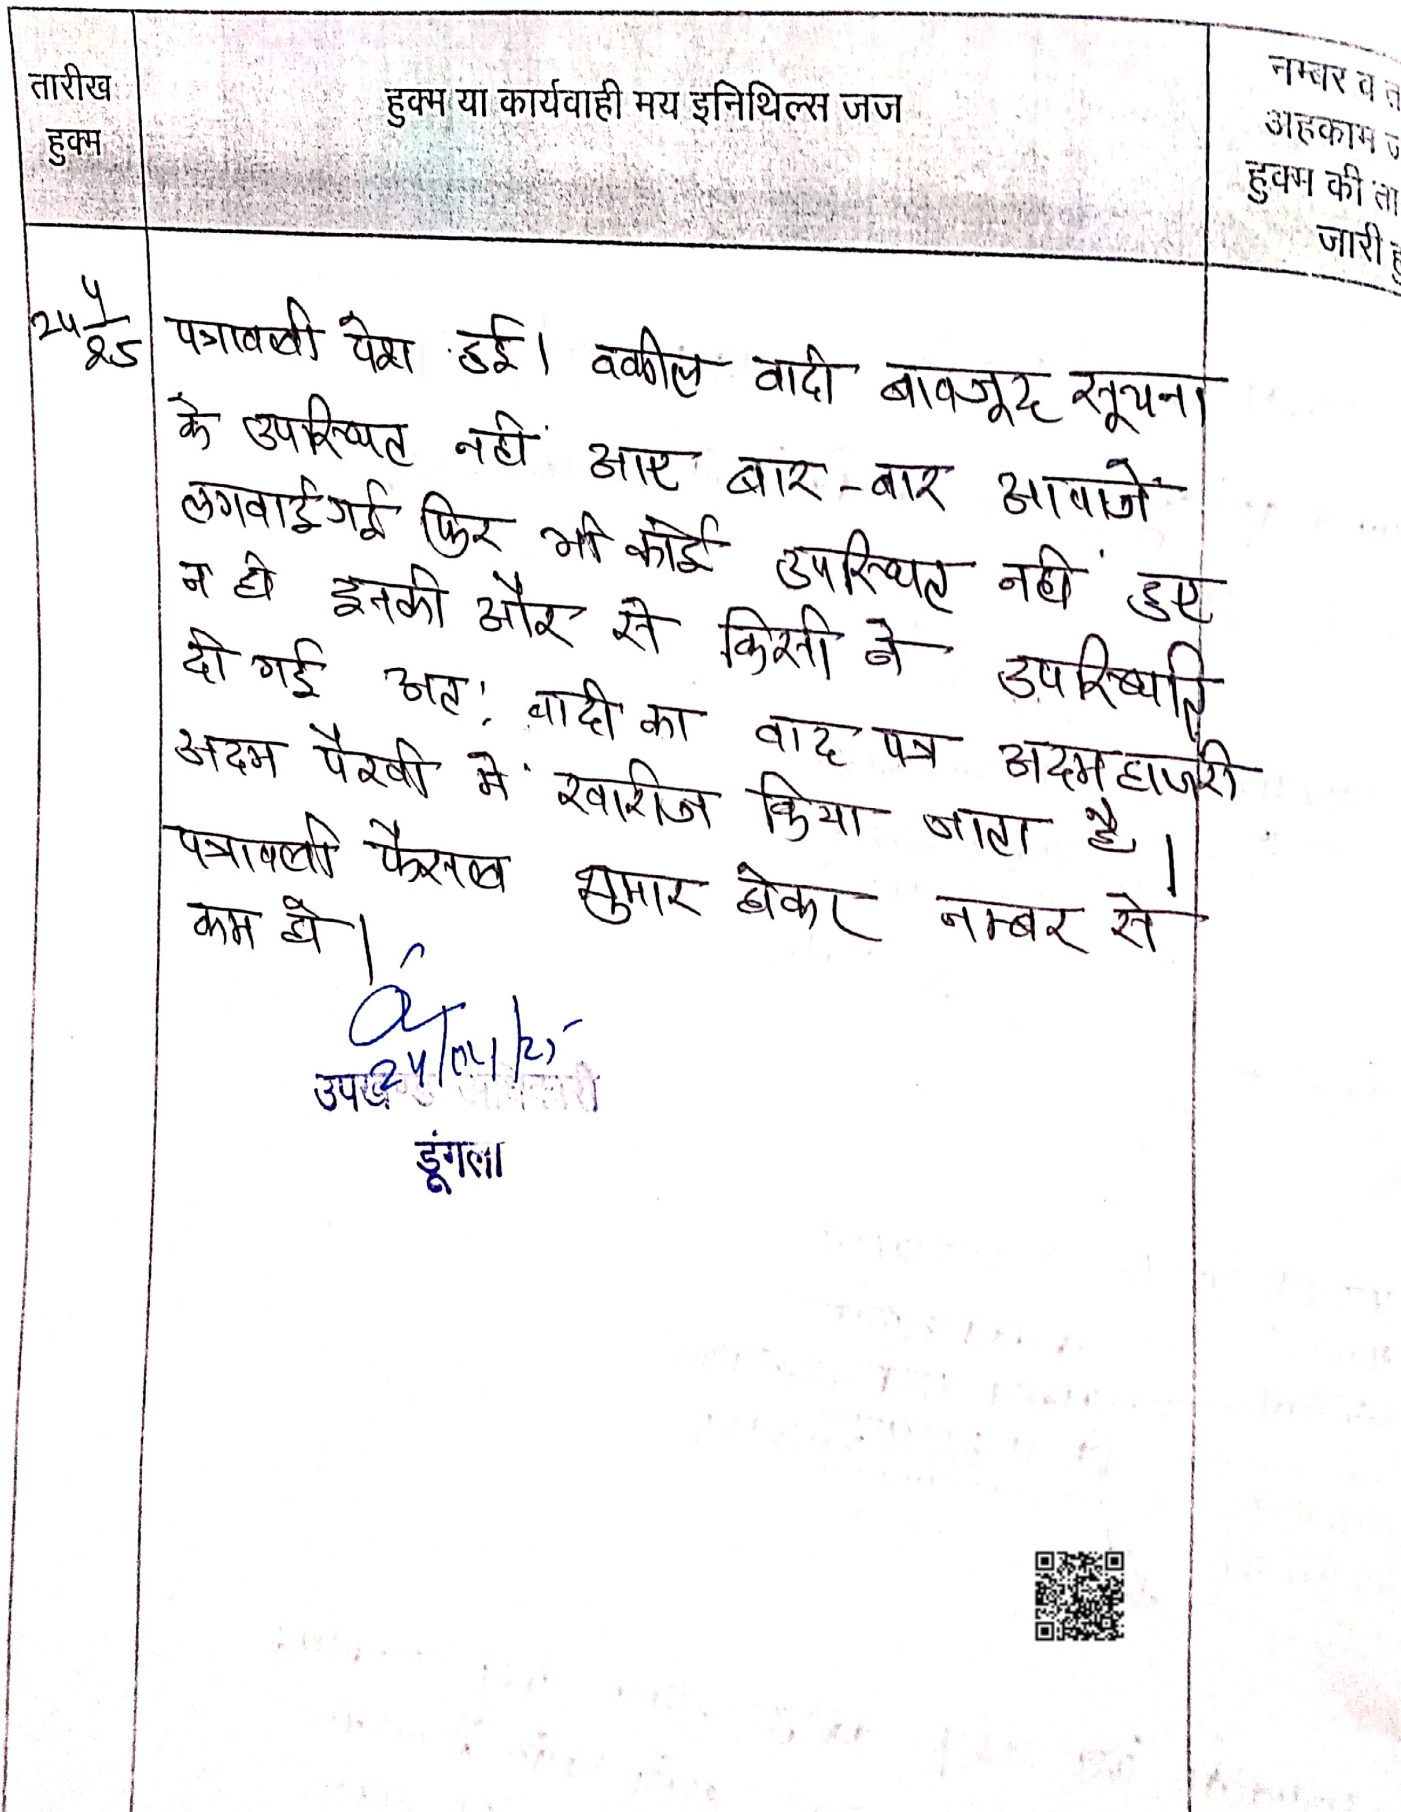 तारीख
हुक्म
हुक्म या कार्यवाही मय इनिथिल्स जज
नम्बर व
अहकाम
हुक्म की ता
जारी
पत्रावली पेश हुई। वकील वादी बावजूद सूचना
के उपस्थित नहीं आए बार-बार आवाजें
लगवाई गई फिर भी कोई उपस्थित नहीं हुए
न ही इनकी और से किसी ने उपस्थिति
दी गई अत: वादी का वाद पत्र अदम हाजरी
अदम पैरवी में खारीज किया जाता है।
पत्रावली फैसल शुमार होकर नम्बर से
कम हो।
डूंगला